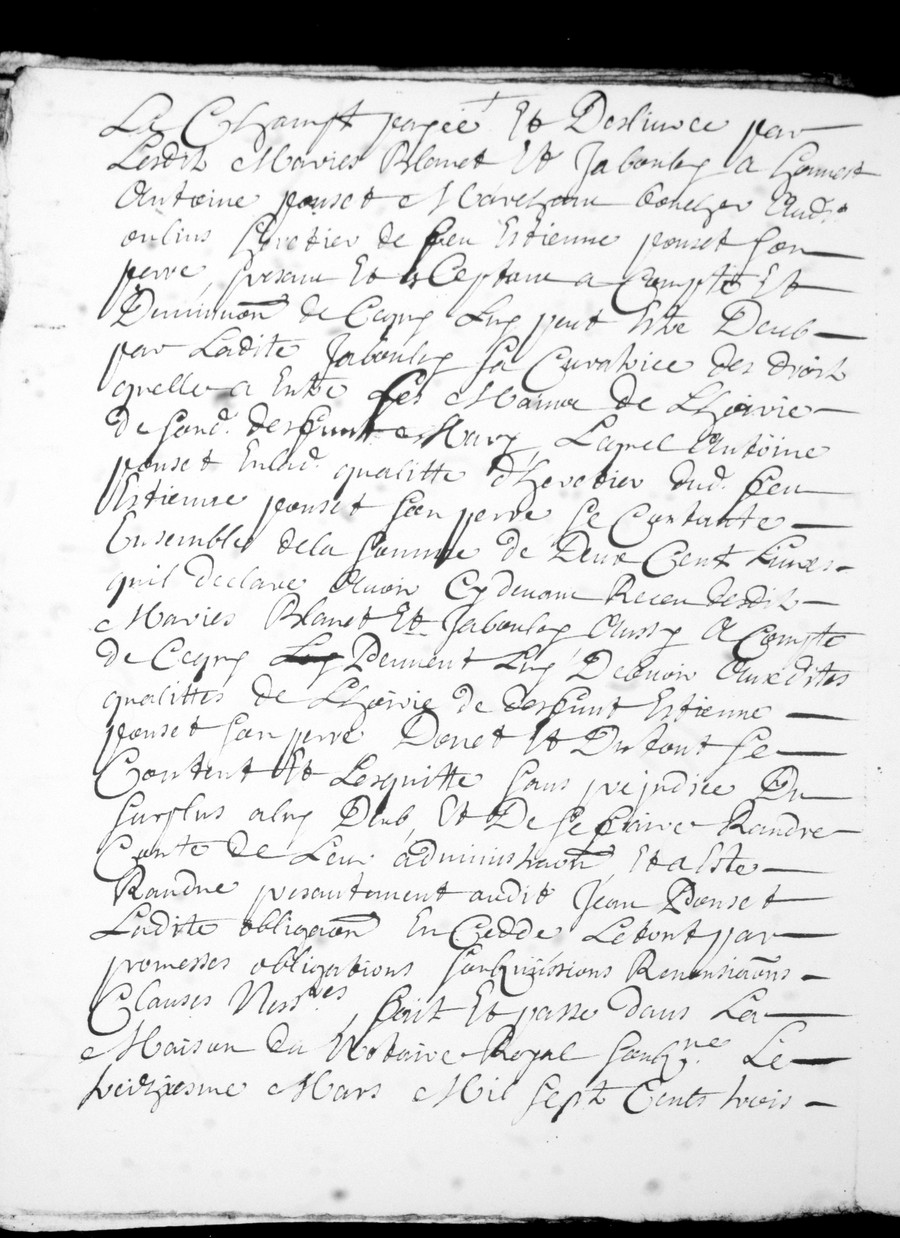 La Champt payee Et Desliuree par
Lesdits Maries Blanet Et Jabouley a honnest
Antoine ponset Marchant boucher Aud.
oulins heretier de feu Estienne ponset son
perre, presant Et acCeptant a Compte Et
Diminuaon de Cequy Luy peut Estre Deub
par Ladite Jabouley Sa Curatrice des droits
quelle a Entre Les Mains de Lhoirie
de Sond. deffunt Mary, Lequel Antoine
ponset En lad. qualitte dheretier dud. feu
Estienne ponset Son perre, Se Contante
Ensemble de la Somme de Deux Cent Liures
quil declare Auoir Cydeuant Receu desdits
Maries Blanet Et Jabouley, Aussy A Compte
de Cequy Peuuent Luy Deauoir Auxdites
qualittes de Lhoirie de deffunt Estienne
ponset Son perre Donct Et Du tout Se
Content Et Lesquitte Sans prejudice Du
Surplus a luy Deub, Et De Se faire Randre
Conte de Leur administraon, Et a Este
Randue presantement audit Jean Ponset
Ladite obligaon En Cedde Le tont par
promesses obligations Soubmissions Renonsiaons
Clauses Ness.res, fait Et passe dans La
Maison du Notaire Royal Soubz.ne Le
treiziesme Mars Mil Sept Cents trois